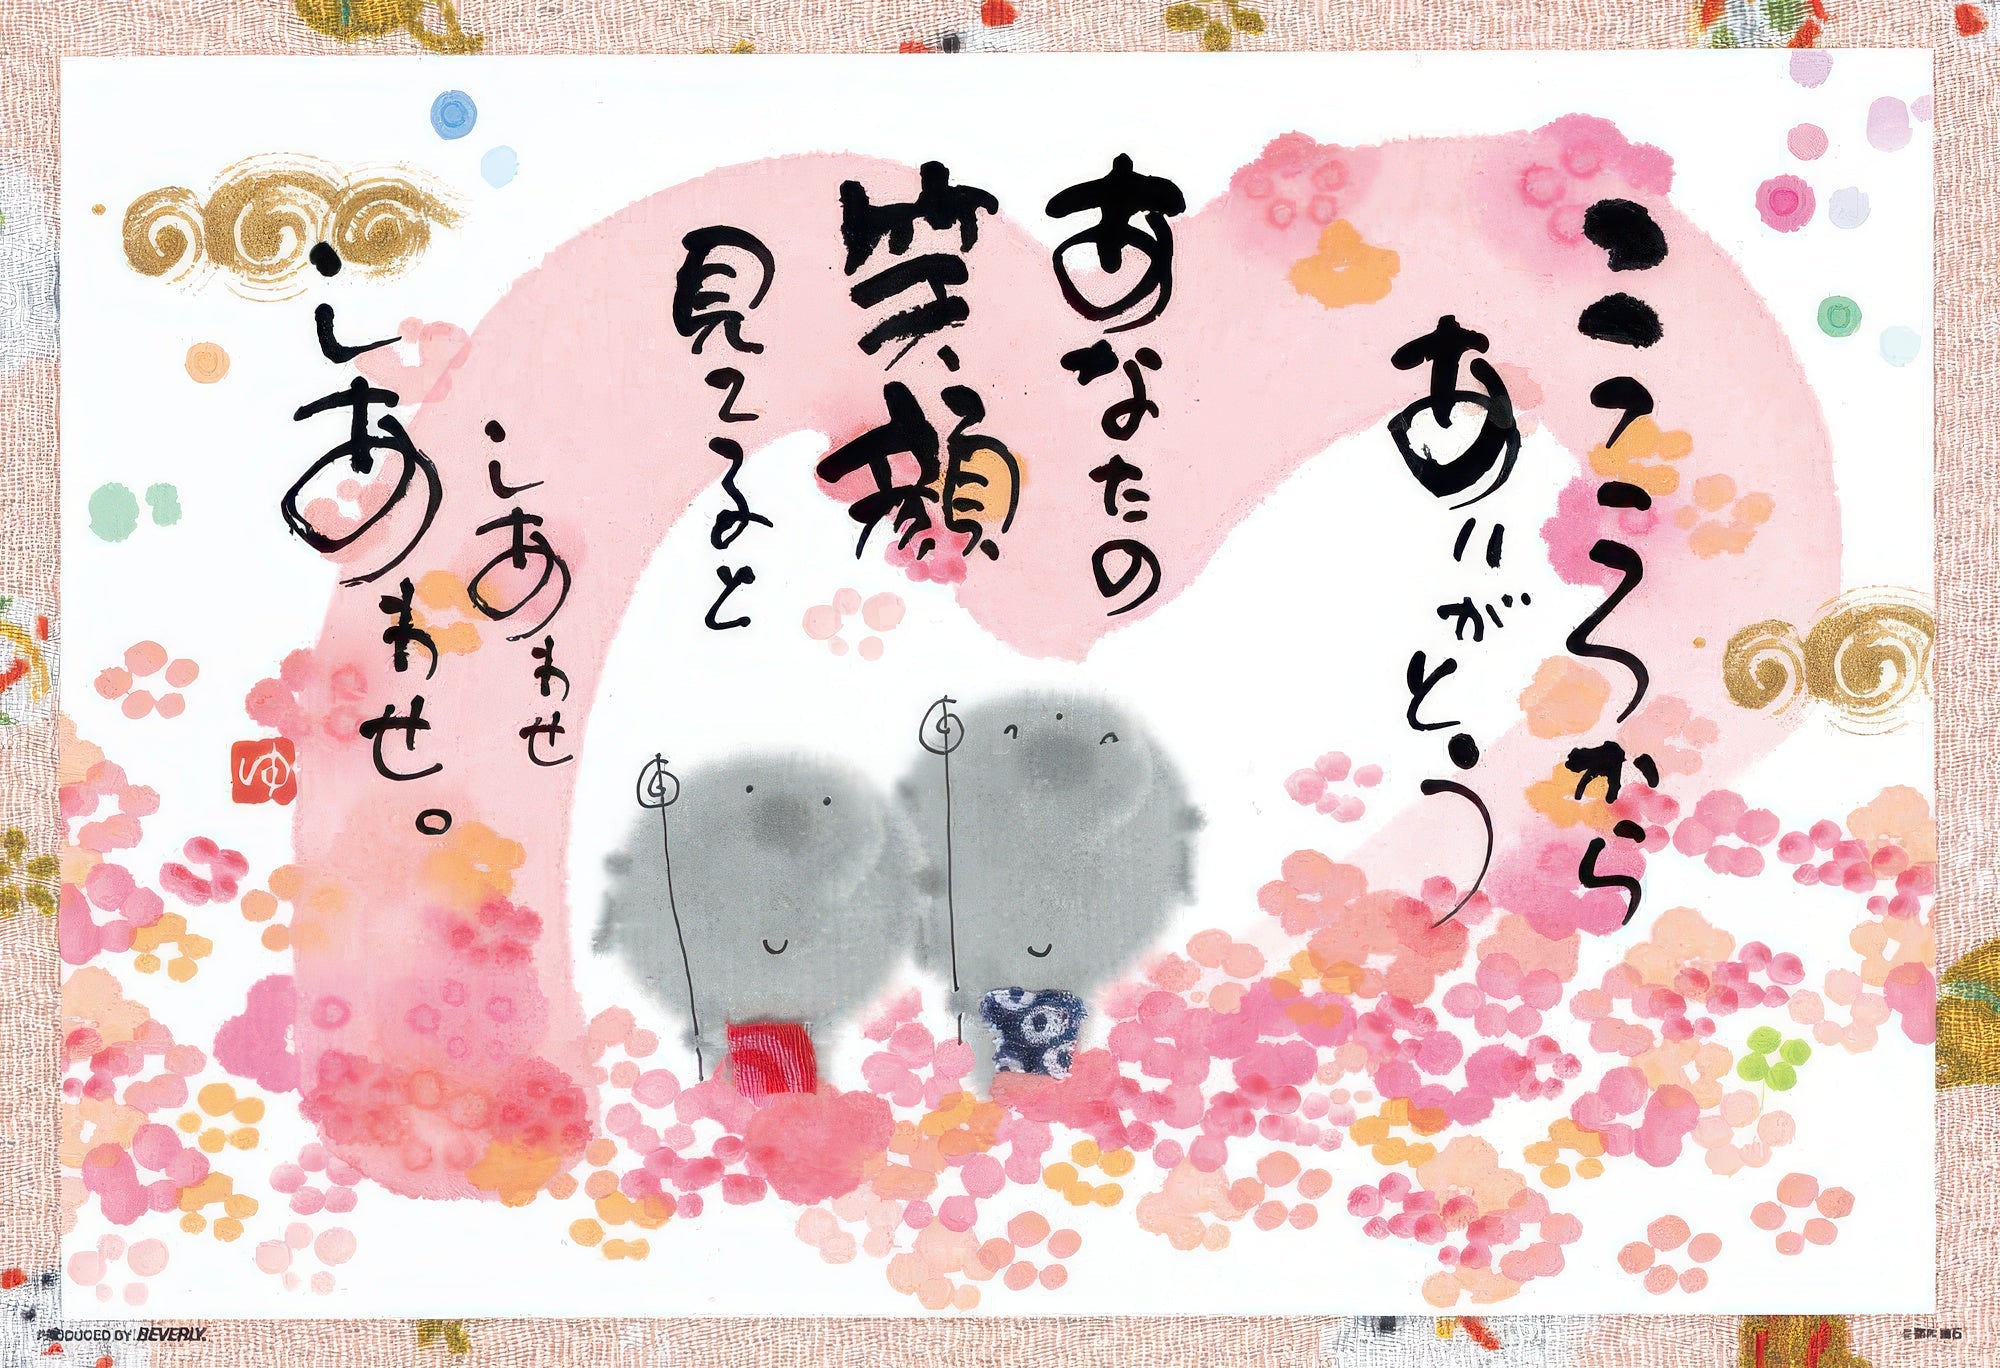 こころから
ありがとう
あなたの
笑顔
見てると
しあわせ
しあわせ。
ゆ
PRODUCED BY BEVERLY.